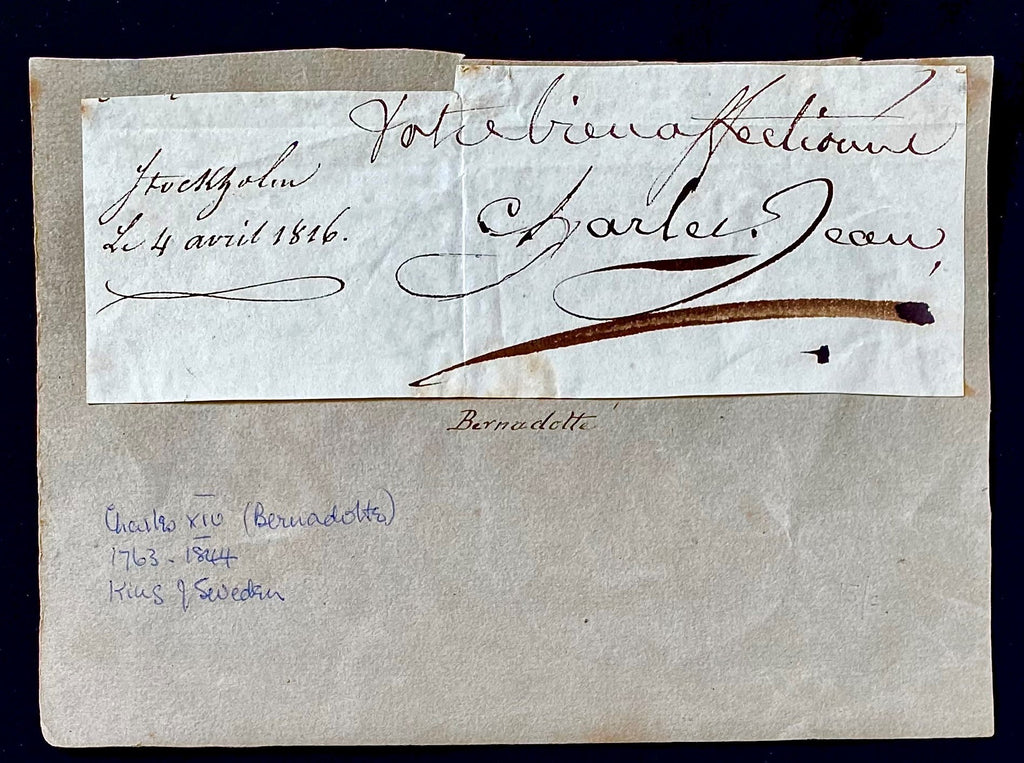 Votre bien affectionné
Stockholm
Le 4 avril 1816.
Charles Jean
Bernadotte
Charles XIV (Bernadotte)
1763 - 1844
King of Sweden